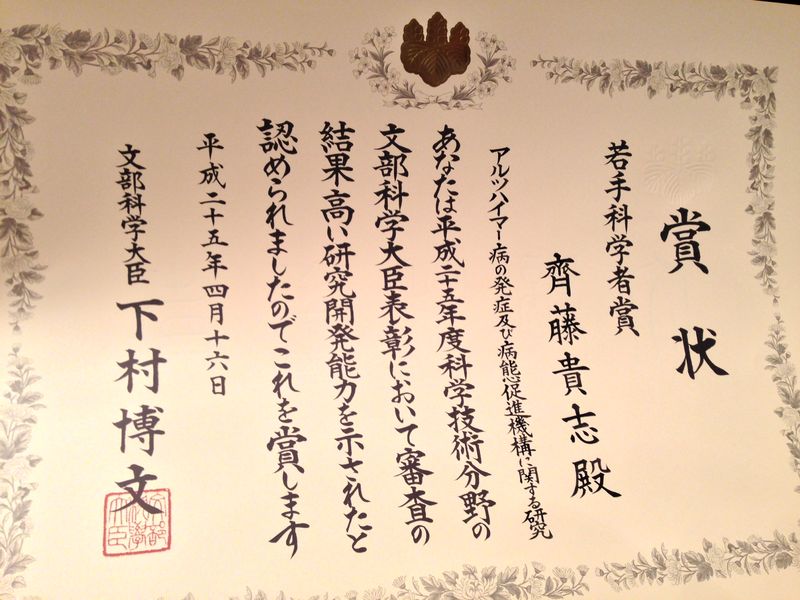 賞状
若手科学者賞
齊藤貴志殿
アルツハイマー病の発症及び病態促進機構に関する研究
あなたは平成二十五年度科学技術分野の
文部科学大臣表彰において審査の
結果高い研究開発能力を示されたと
認められましたのでこれを賞します
平成二十五年四月十六日
文部科学大臣 下村博文